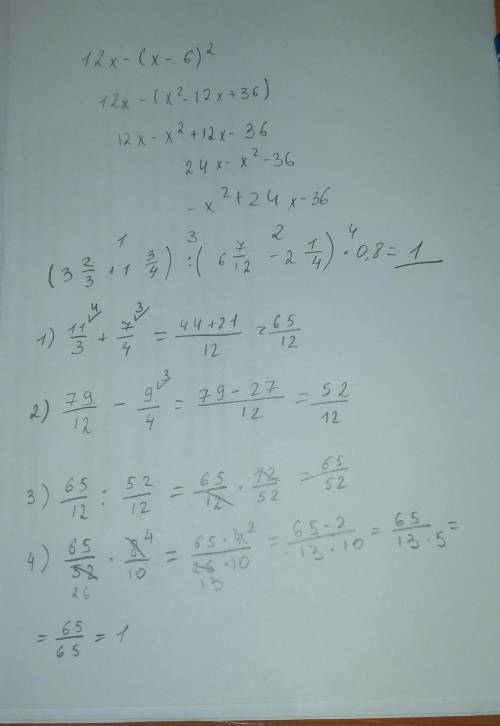 12x - (x - 6)²
12x - (x² - 12x + 36)
12x - x² + 12x - 36
24x - x² - 36
- x² + 24x - 36
1 3 2 4
(3 2/3 + 1 3/4) : (6 7/12 - 2 1/4) · 0,8 = 1
1) 11/3 + 7/4 = (44 + 21)/12 = 65/12
2) 79/12 - 9/4 = (79 - 27)/12 = 52/12
3) 65/12 : 52/12 = 65/12 · 12/52 = 65/52
4) 65/52 · 8/10 = (65 · 4)/(26 · 10) = (65 · 2)/(13 · 10) = 65/(13 · 5) =
= 65/65 = 1